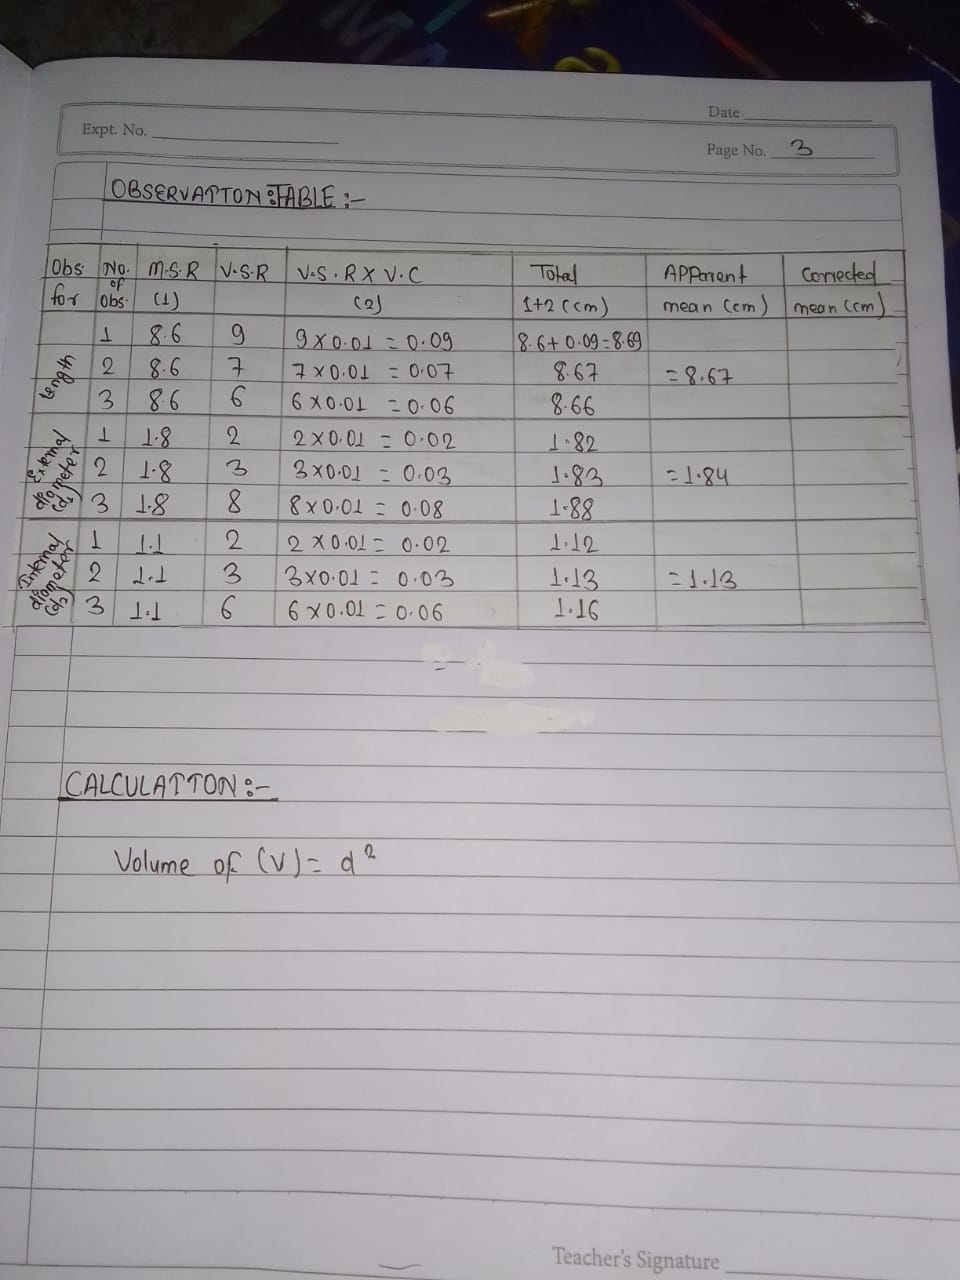 Date
Expt. No.
Page No. 3
OBSERVATION TABLE :-
Obs for No. of Obs. M.S.R (1) V.S.R V.S.R X V.C (2) Total 1+2 (cm) Apparent mean (cm) Corrected mean (cm)
Length
1 8.6 9 9 X 0.01 = 0.09 8.6 + 0.09 = 8.69
2 8.6 7 7 X 0.01 = 0.07 8.67 = 8.67
3 8.6 6 6 X 0.01 = 0.06 8.66
External diameter (d₁)
1 1.8 2 2 X 0.01 = 0.02 1.82
2 1.8 3 3 X 0.01 = 0.03 1.83 = 1.84
3 1.8 8 8 X 0.01 = 0.08 1.88
Internal diameter (d₂)
1 1.1 2 2 X 0.01 = 0.02 1.12
2 1.1 3 3 X 0.01 = 0.03 1.13 = 1.13
3 1.1 6 6 X 0.01 = 0.06 1.16
CALCULATION :-
Volume of (V) = d²
Teacher's Signature